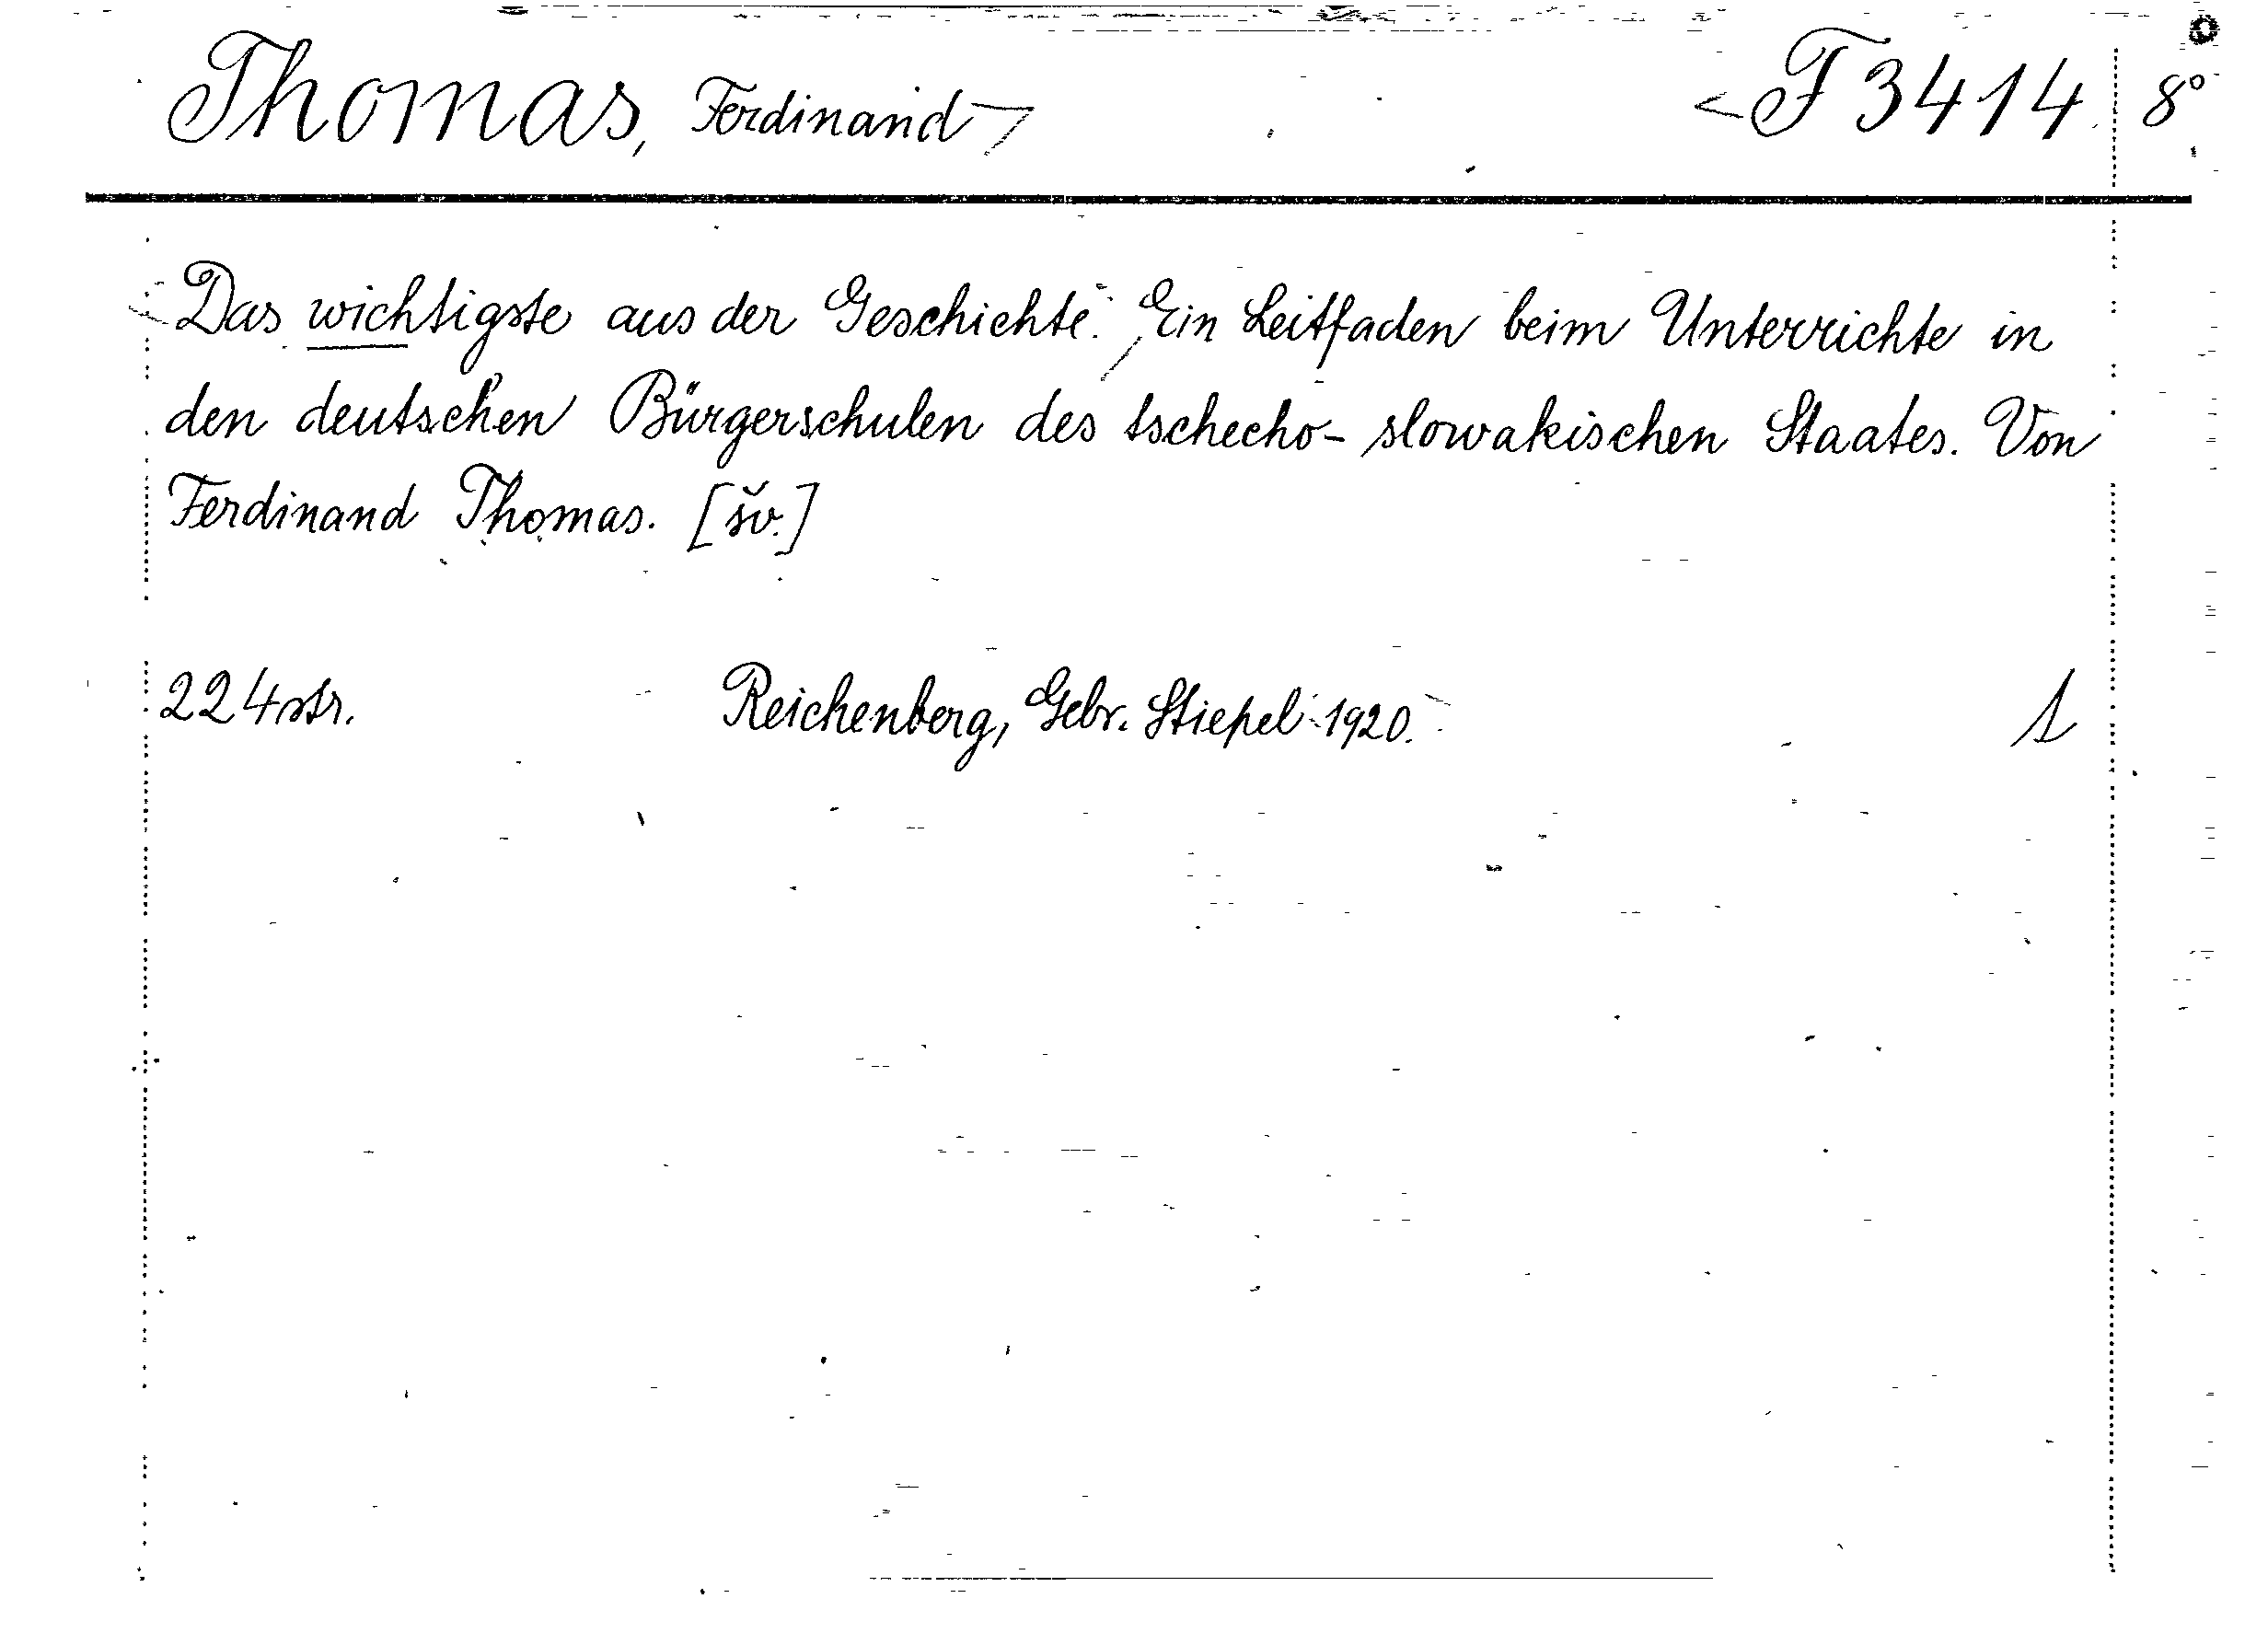 Thomas, Ferdinand F 3414 8°
Das wichtigste aus der Geschichte. Ein Leitfaden beim Unterrichte in
den deutschen Bürgerschulen des tschecho-slowakischen Staates. Von
Ferdinand Thomas. [šv.]
224 str. Reichenberg, Gebr. Stiepel 1920. 1